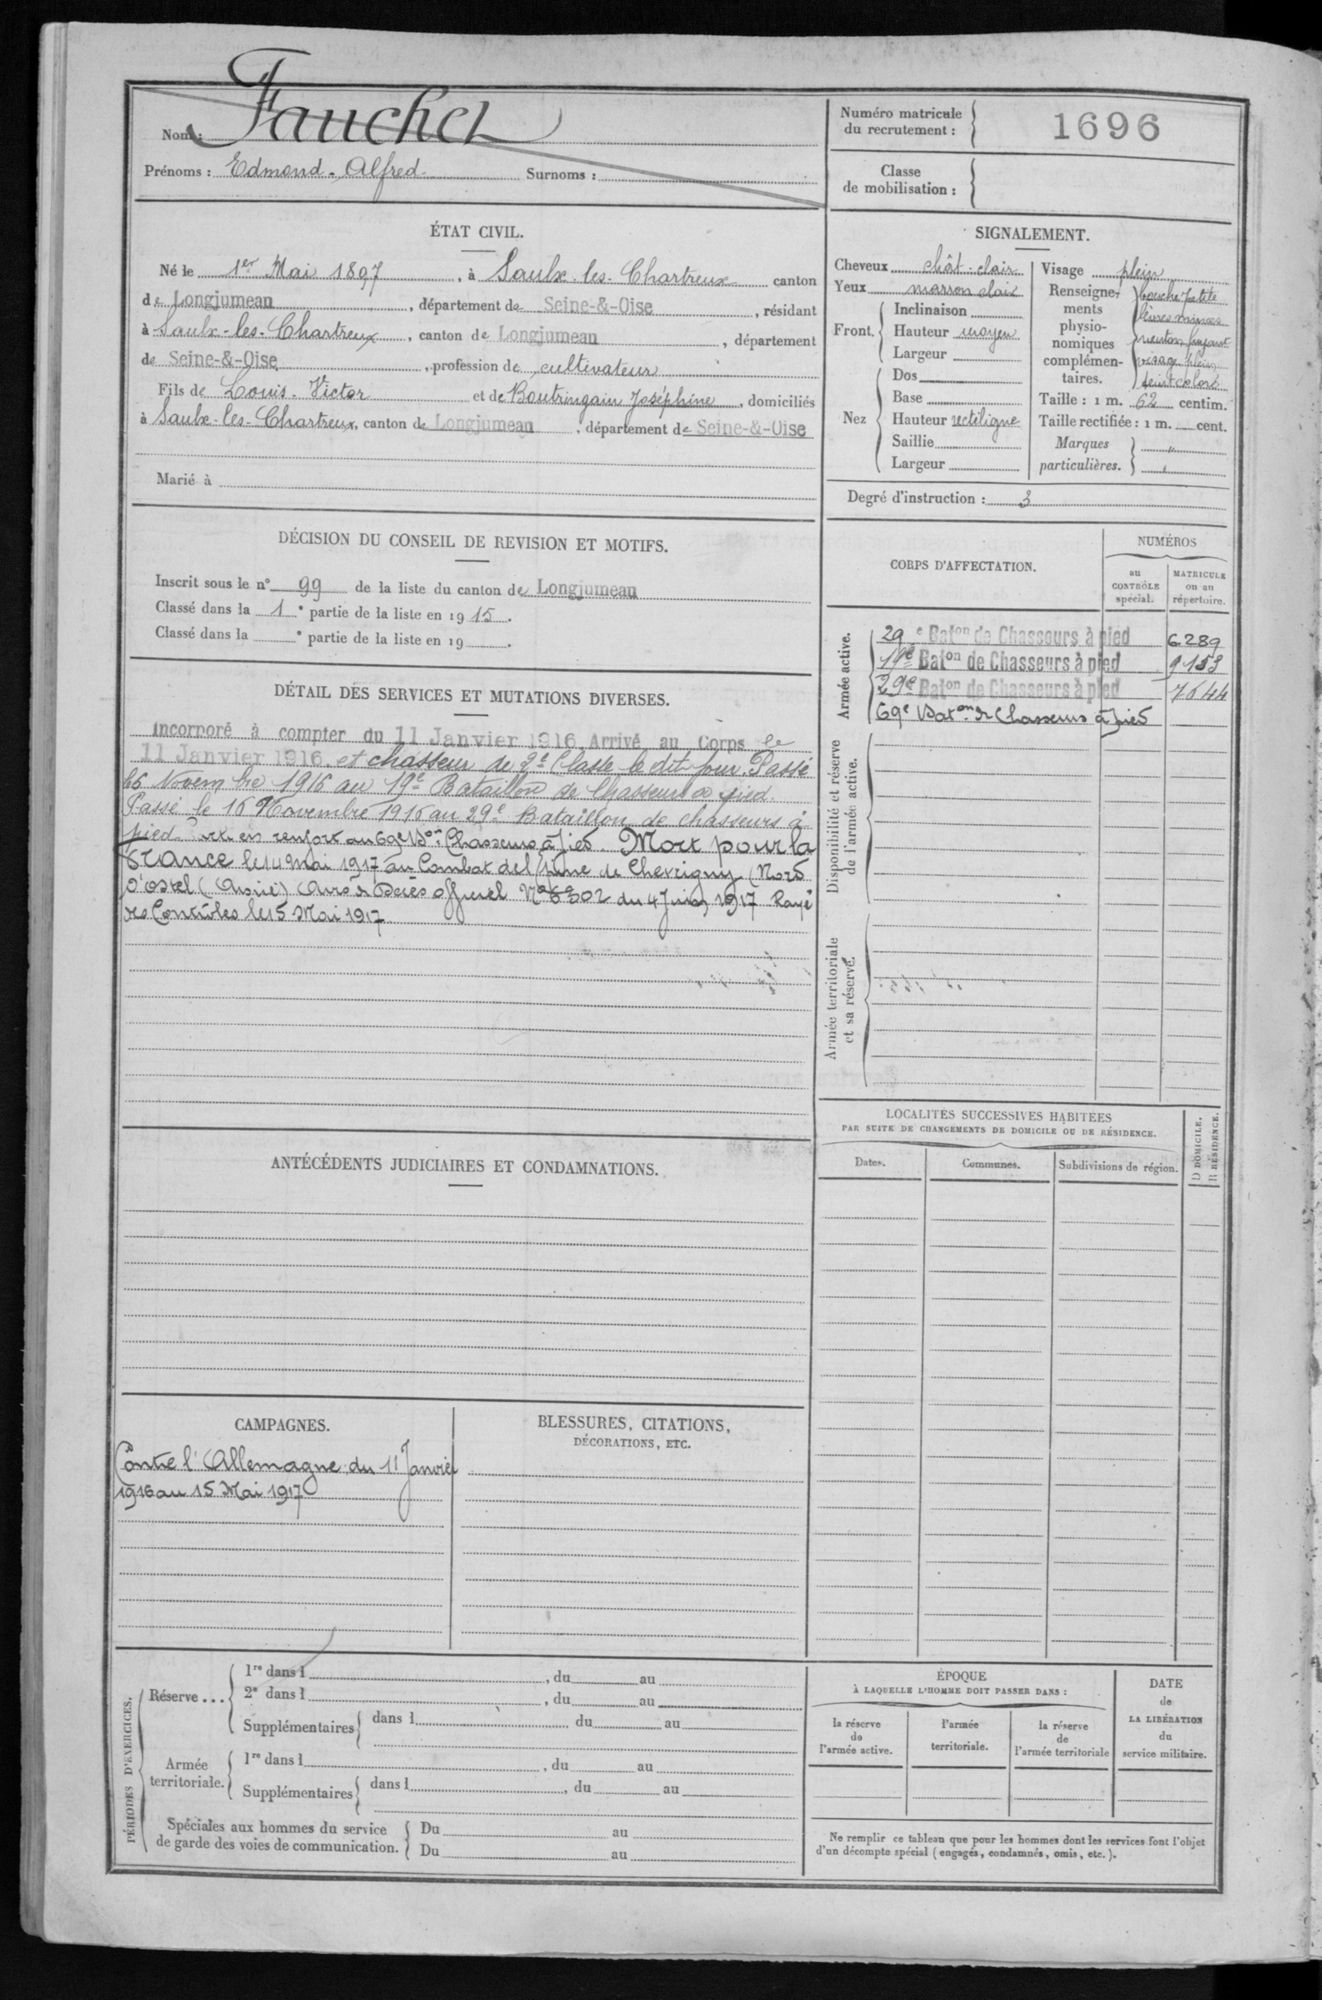 Nom : Faucher
Prénoms : Edmond-Alfred Surnoms :
Numéro matricule du recrutement : 1696
Classe de mobilisation :
ÉTAT CIVIL.
Né le 1er Mai 1897, à Saulx-les-Chartreux canton
de Longjumeau, département de Seine-&-Oise, résidant
à Saulx-les-Chartreux, canton de Longjumeau, département
de Seine-&-Oise, profession de cultivateur
Fils de Louis-Victor et de Boutringain Joséphine, domiciliés
à Saulx-les-Chartreux, canton de Longjumeau, département de Seine-&-Oise
Marié à
SIGNALEMENT.
Cheveux chât-clair
Yeux marron clair
Front. Inclinaison
Hauteur moyen
Largeur
Nez Dos
Base
Hauteur rectiligne
Saillie
Largeur
Visage plein
Renseignements physionomiques complémentaires.
bouche petite
lèvres minces
menton fuyant
visage plein
teint coloré
Taille : 1 m. 62 centim.
Taille rectifiée : 1 m. cent.
Marques particulières. "
Degré d'instruction : 3
DÉCISION DU CONSEIL DE REVISION ET MOTIFS.
Inscrit sous le n° 99 de la liste du canton de Longjumeau
Classé dans la 1e partie de la liste en 1915.
Classé dans la e partie de la liste en 19 .
DÉTAIL DES SERVICES ET MUTATIONS DIVERSES.
Incorporé à compter du 11 Janvier 1916 Arrivé au Corps le
11 Janvier 1916. et chasseur de 2e Classe le dit jour. Passé
le 6 Novembre 1916 au 19e Bataillon de Chasseurs à pied.
Passé le 16 Novembre 1916 au 29e Bataillon de chasseurs à
pied. en renfort au 69e Bon Chasseurs à Pied. Mort pour la
France le 14 Mai 1917 au Combat de l'Épine de Chevrigny (Nord
d'Ostel (Aisne) Avis de Décès officiel No 302 du 4 Juin 1917 Rayé
des Contrôles le 15 Mai 1917
CORPS D'AFFECTATION.
NUMÉROS
au CONTRÔLE spécial.
MATRICULE ou au répertoire.
Armée active.
29e Baton de Chasseurs à pied 6289
19e Baton de Chasseurs à pied 9153
29e Baton de Chasseurs à pied 7644
69e Baton de Chasseurs à Pied
Disponibilité et réserve de l'armée active.
Armée territoriale et sa réserve.
LOCALITÉS SUCCESSIVES HABITÉES
PAR SUITE DE CHANGEMENTS DE DOMICILE OU DE RÉSIDENCE.
Dates. Communes. Subdivisions de région. D DOMICILE. R RÉSIDENCE.
ANTÉCÉDENTS JUDICIAIRES ET CONDAMNATIONS.
CAMPAGNES.
Contre l'Allemagne du 11 Janvier
1916 au 15 Mai 1917
BLESSURES, CITATIONS,
DÉCORATIONS, ETC.
PÉRIODES D'EXERCICES.
Réserve...
1re dans l , du au
2e dans l , du au
Supplémentaires dans l du au
Armée territoriale.
1re dans l , du au
Supplémentaires dans l , du au
Spéciales aux hommes du service Du au
de garde des voies de communication. Du au
ÉPOQUE
À LAQUELLE L'HOMME DOIT PASSER DANS :
la réserve de l'armée active.
l'armée territoriale.
la réserve de l'armée territoriale
DATE de LA LIBÉRATION du service militaire.
Ne remplir ce tableau que pour les hommes dont les services font l'objet
d'un décompte spécial (engagés, condamnés, omis, etc.).